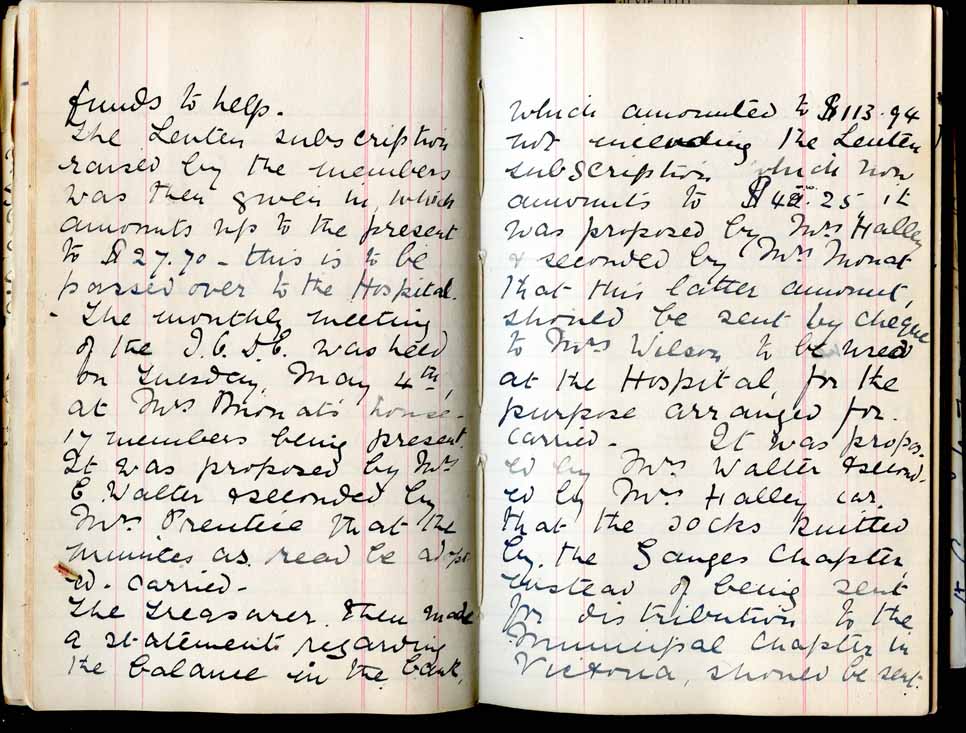 funds to help.
The Lenten subscription
raised by the members
was then given in, which
amounts up to the present
to $27.70 – this is to be
passed over to the Hospital.
The monthly meeting
of the I.O.D.E. was held
on Tuesday, May 4th,
at Mrs Mouat's house –
17 members being present.
It was proposed by Mrs
E Walter & seconded by
Mrs Prentice that the
minutes as read be adopt
ed. carried –
The Treasurer then made
a statement regarding
the balance in the bank,
which amounted to $113.94
not including the Lenten
subscription which now
amounts to $42.25 it
was proposed by Mrs Halley
& seconded by Mrs Mouat
that this latter amount,
should be sent by cheque
to Mrs Wilson to be used
at the Hospital, for the
purpose arranged for.
carried – It was propos-
ed by Mrs Walter & second-
ed by Mrs Halley car.
that the socks knitted
by the Ganges Chapter,
instead of being sent
for distribution to the
Municipal Chapter in
Victoria, should be sent.